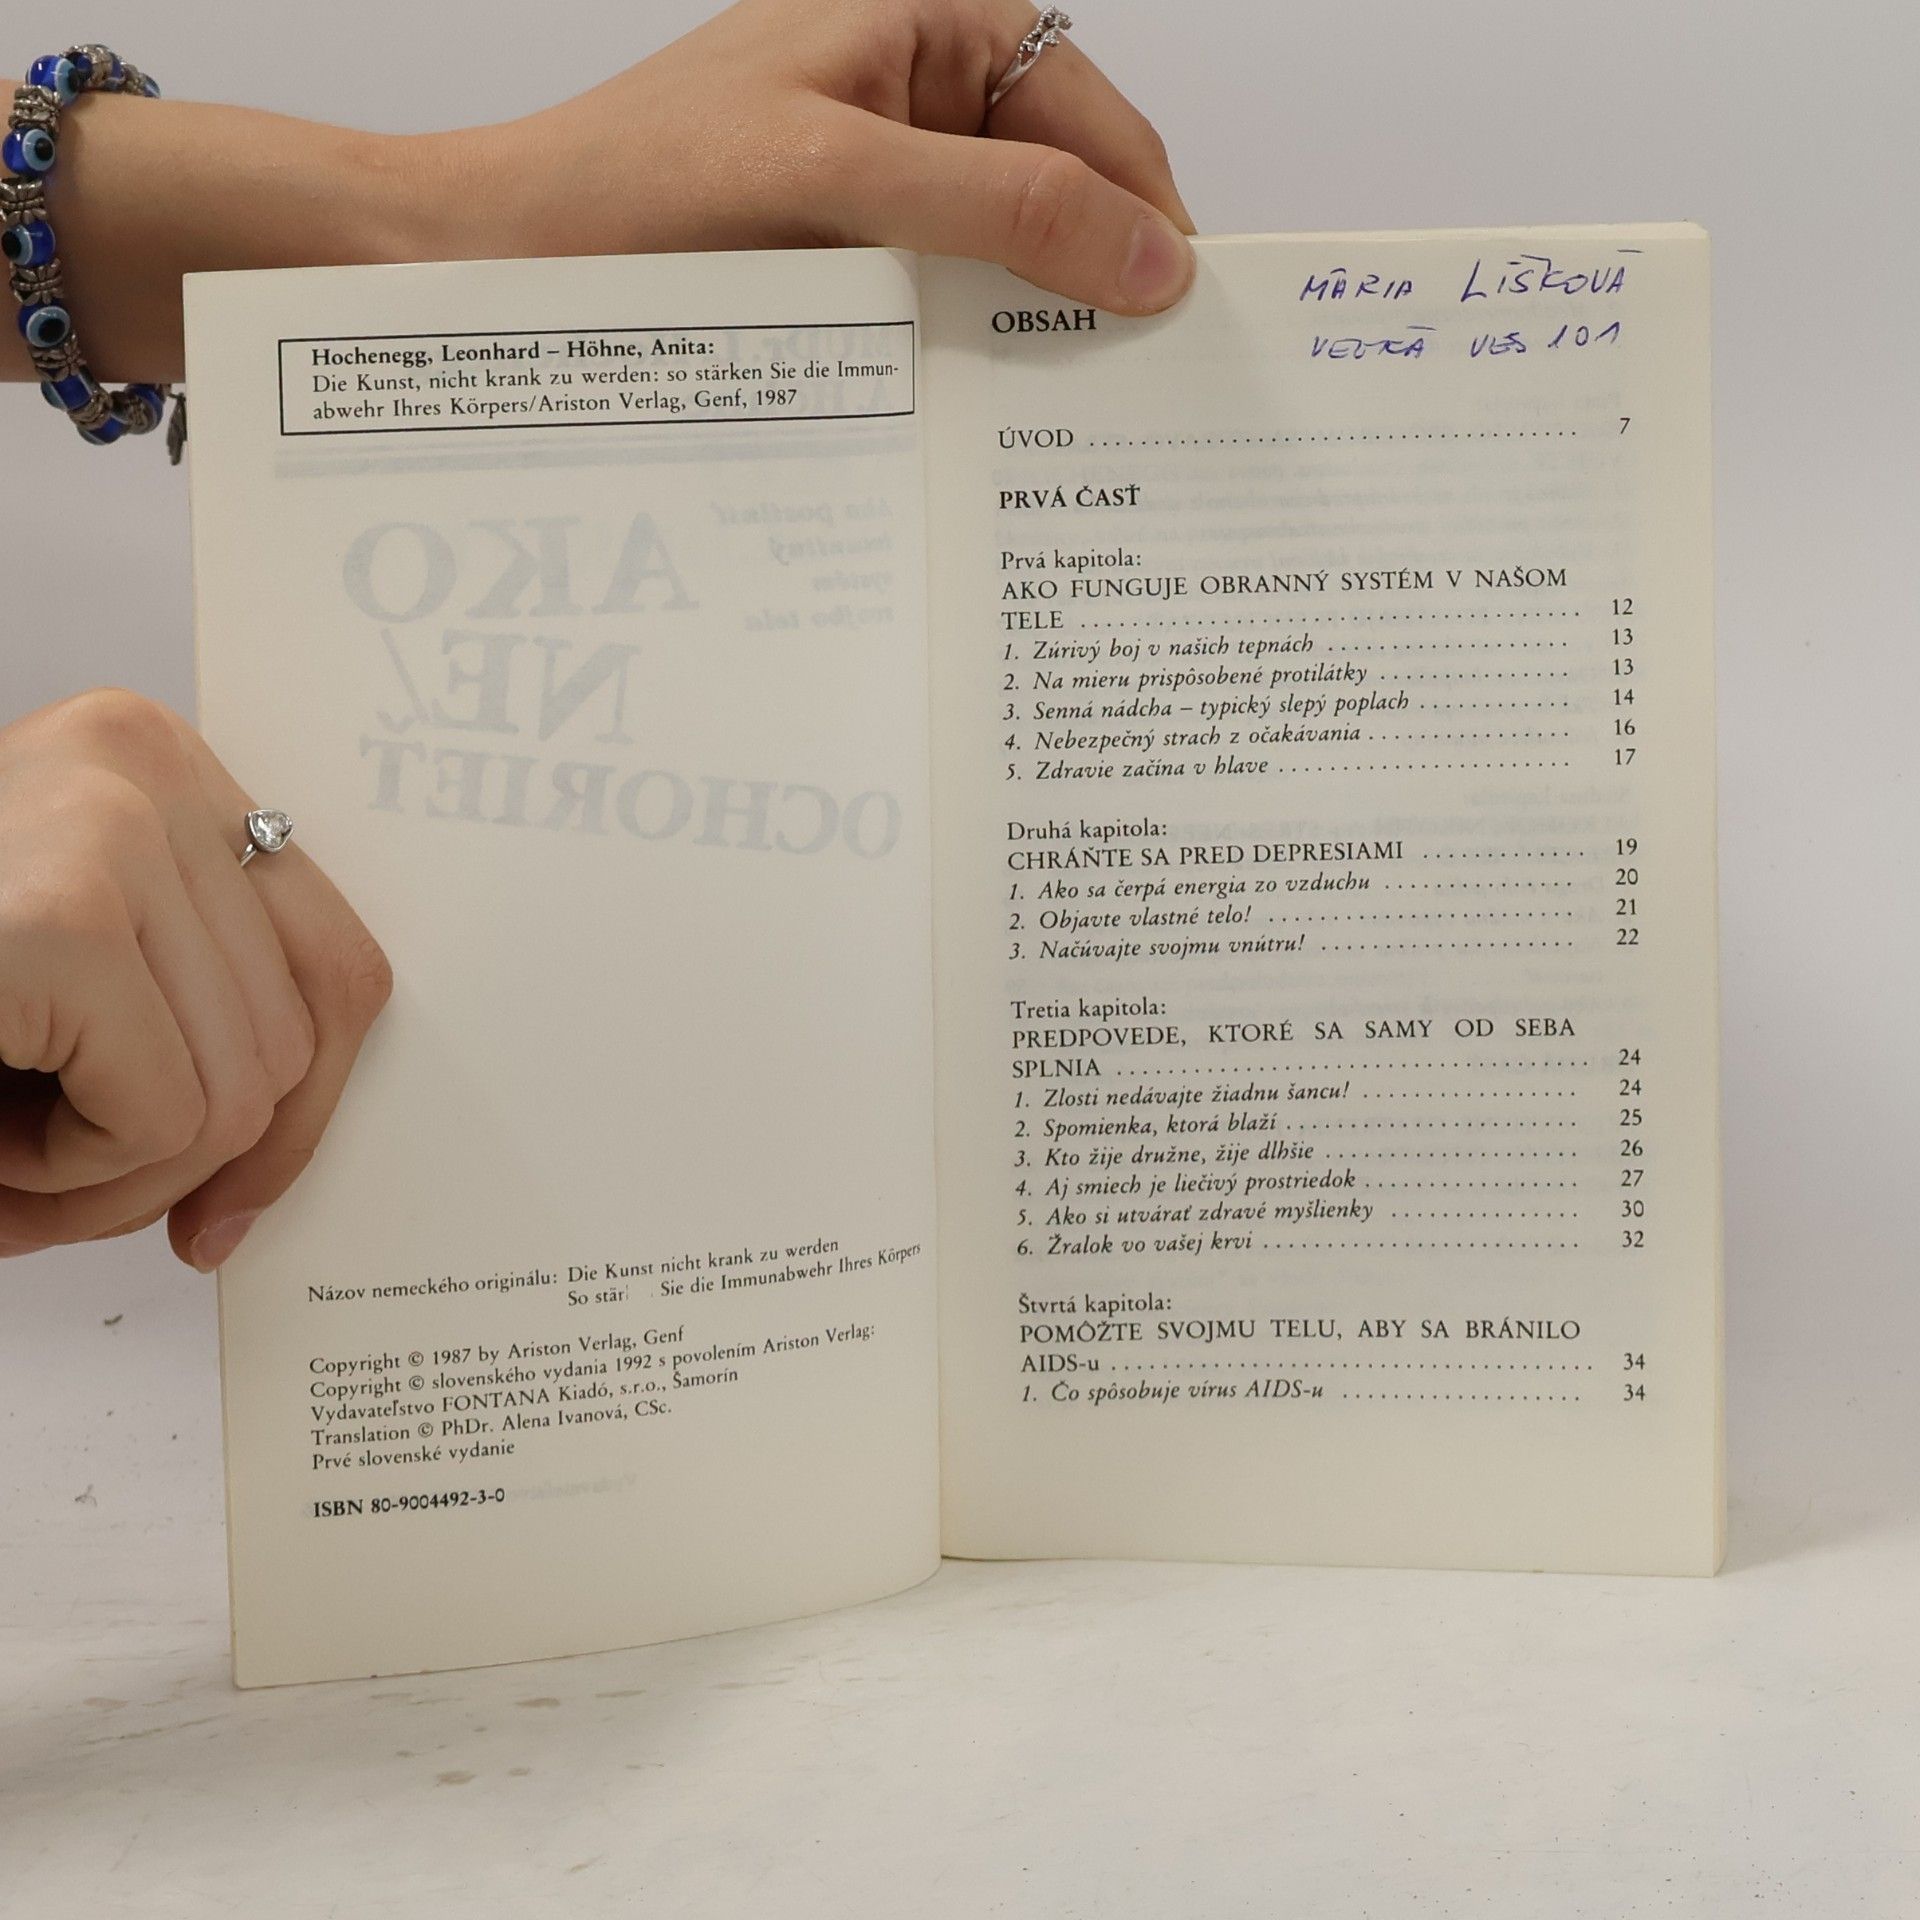 Hochenegg, Leonhard – Höhne, Anita:
Die Kunst, nicht krank zu werden: so stärken Sie die Immun-
abwehr Ihres Körpers/Ariston Verlag, Genf, 1987
AKO
NE
OCHORIET
Ako posilniť
imunitný
systém
svojho tela
Názov nemeckého originálu: Die Kunst nicht krank zu werden
So stär Sie die Immunabwehr Ihres Körpers
Copyright © 1987 by Ariston Verlag, Genf
Copyright © slovenského vydania 1992 s povolením Ariston Verlag:
Vydavateľstvo FONTANA Kiadó, s.r.o., Šamorín
Translation © PhDr. Alena Ivanová, CSc.
Prvé slovenské vydanie
ISBN 80-9004492-3-0
MÁRIA LÍŠKOVÁ
VEĽKÁ VES 101
OBSAH
ÚVOD ........................................ 7
PRVÁ ČASŤ
Prvá kapitola:
AKO FUNGUJE OBRANNÝ SYSTÉM V NAŠOM
TELE ........................................ 12
1. Zúrivý boj v našich tepnách .................... 13
2. Na mieru prispôsobené protilátky ............... 13
3. Senná nádcha – typický slepý poplach ............ 14
4. Nebezpečný strach z očakávania ................ 16
5. Zdravie začína v hlave ....................... 17
Druhá kapitola:
CHRÁŇTE SA PRED DEPRESIAMI ............. 19
1. Ako sa čerpá energia zo vzduchu ............... 20
2. Objavte vlastné telo! ......................... 21
3. Načúvajte svojmu vnútru! .................... 22
Tretia kapitola:
PREDPOVEDE, KTORÉ SA SAMY OD SEBA
SPLNIA ...................................... 24
1. Zlosti nedávajte žiadnu šancu! ................. 24
2. Spomienka, ktorá blaží ....................... 25
3. Kto žije družne, žije dlhšie .................... 26
4. Aj smiech je liečivý prostriedok ................. 27
5. Ako si utvárať zdravé myšlienky ............... 30
6. Žralok vo vašej krvi .......................... 32
Štvrtá kapitola:
POMÔŽTE SVOJMU TELU, ABY SA BRÁNILO
AIDS-u ...................................... 34
1. Čo spôsobuje vírus AIDS-u ................... 34